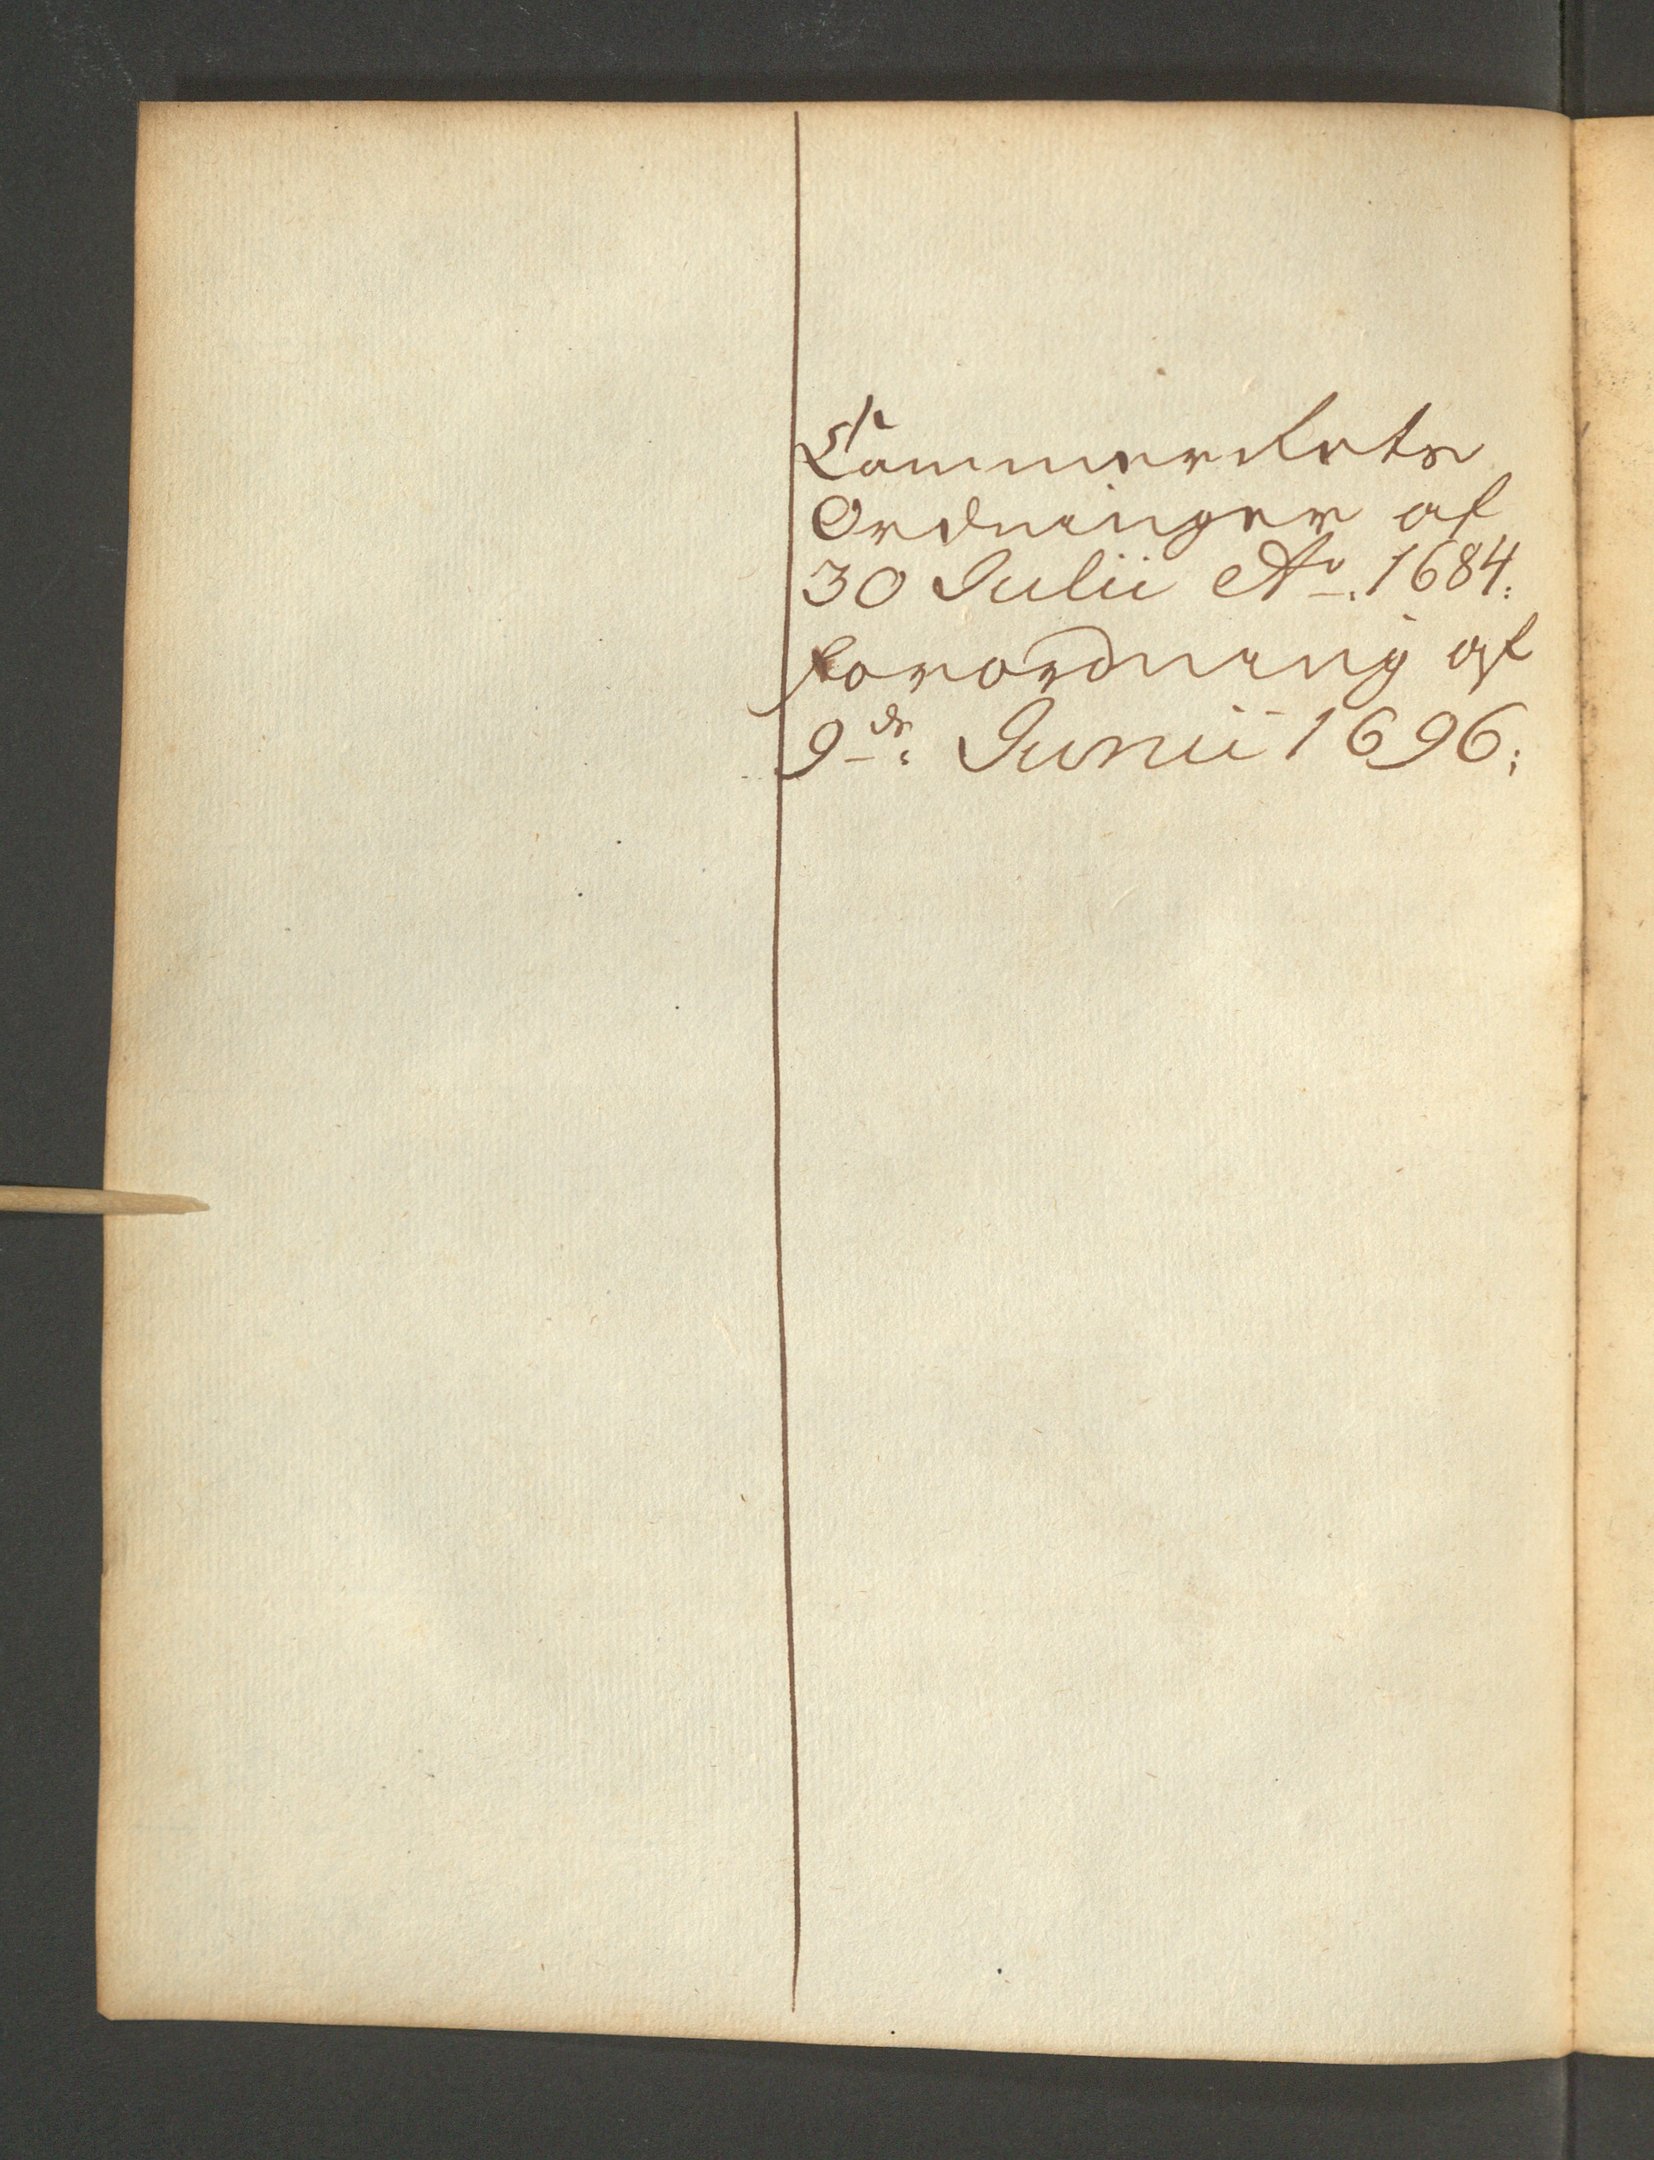 Cammer Rets
Ordninger af
30 Julii Ao. 1684.
forordning af
9de: Junii 1696: